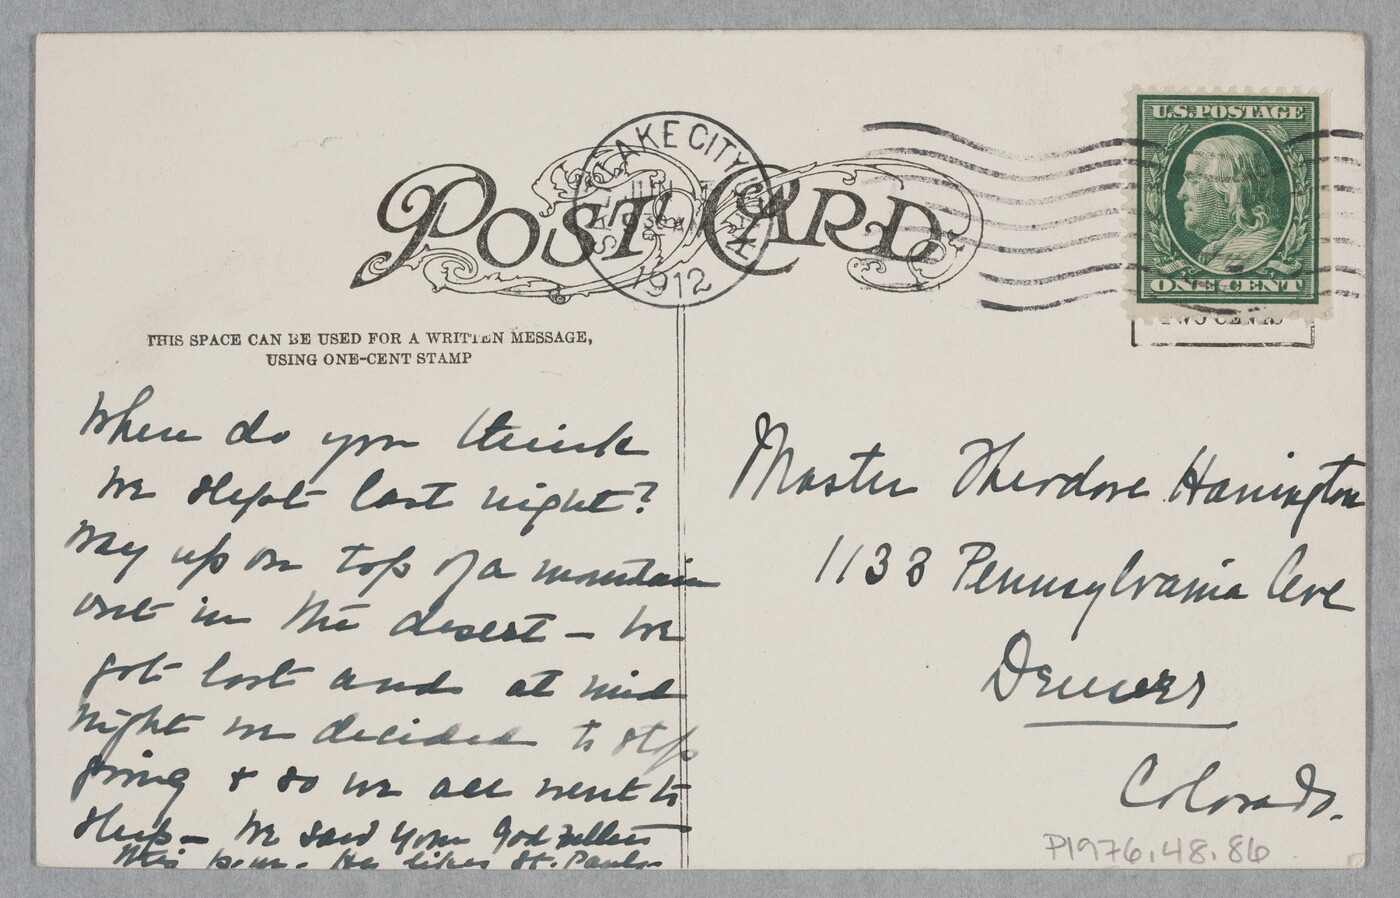 POST CARD
SALT LAKE CITY, UTAH
JUN
1912
U.S. POSTAGE
ONE CENT
TWO CENTS
THIS SPACE CAN BE USED FOR A WRITTEN MESSAGE,
USING ONE-CENT STAMP
Where do you think
we slept last night?
Way up on top of a mountain
out in the desert - We
got lost and at mid
night we decided to stop
going & so we all went to
sleep - We said your God
this. He likes St. Pauls -
Master Theodore Harrington
1133 Pennsylvania Ave
Denver
Colorado.
P1976.48.86